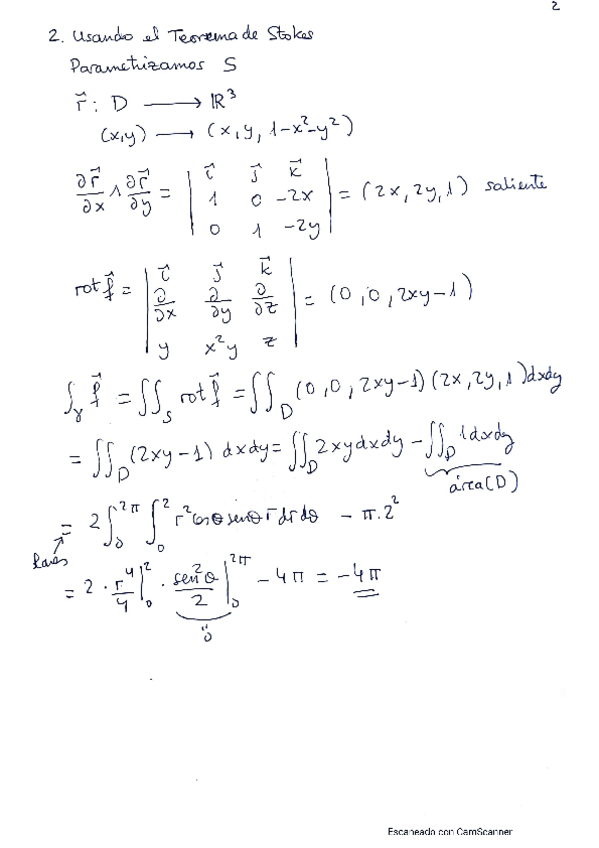 2
2. Usando el Teorema de Stokes
Parametrizamos S
r⃗ : D ⟶ ℝ³
(x,y) ⟶ (x, y, 1-x²-y²)
∂r⃗/∂x ∧ ∂r⃗/∂y = | i⃗ j⃗ k⃗ ; 1 0 -2x ; 0 1 -2y | = (2x, 2y, 1) saliente
rot f⃗ = | i⃗ j⃗ k⃗ ; ∂/∂x ∂/∂y ∂/∂z ; y x²y z | = (0, 0, 2xy-1)
∫_γ f⃗ = ∬_S rot f⃗ = ∬_D (0, 0, 2xy-1)(2x, 2y, 1) dxdy
= ∬_D (2xy-1) dxdy = ∬_D 2xy dxdy - ∬_D 1 dxdy
área(D)
= 2 ∫_0^{2π} ∫_0^2 r² cosθ senθ r dr dθ - π·2²
= 2 · r⁴/4 |_0^2 · sen²θ/2 |_0^{2π} - 4π = -4π
0
Escaneado con CamScanner